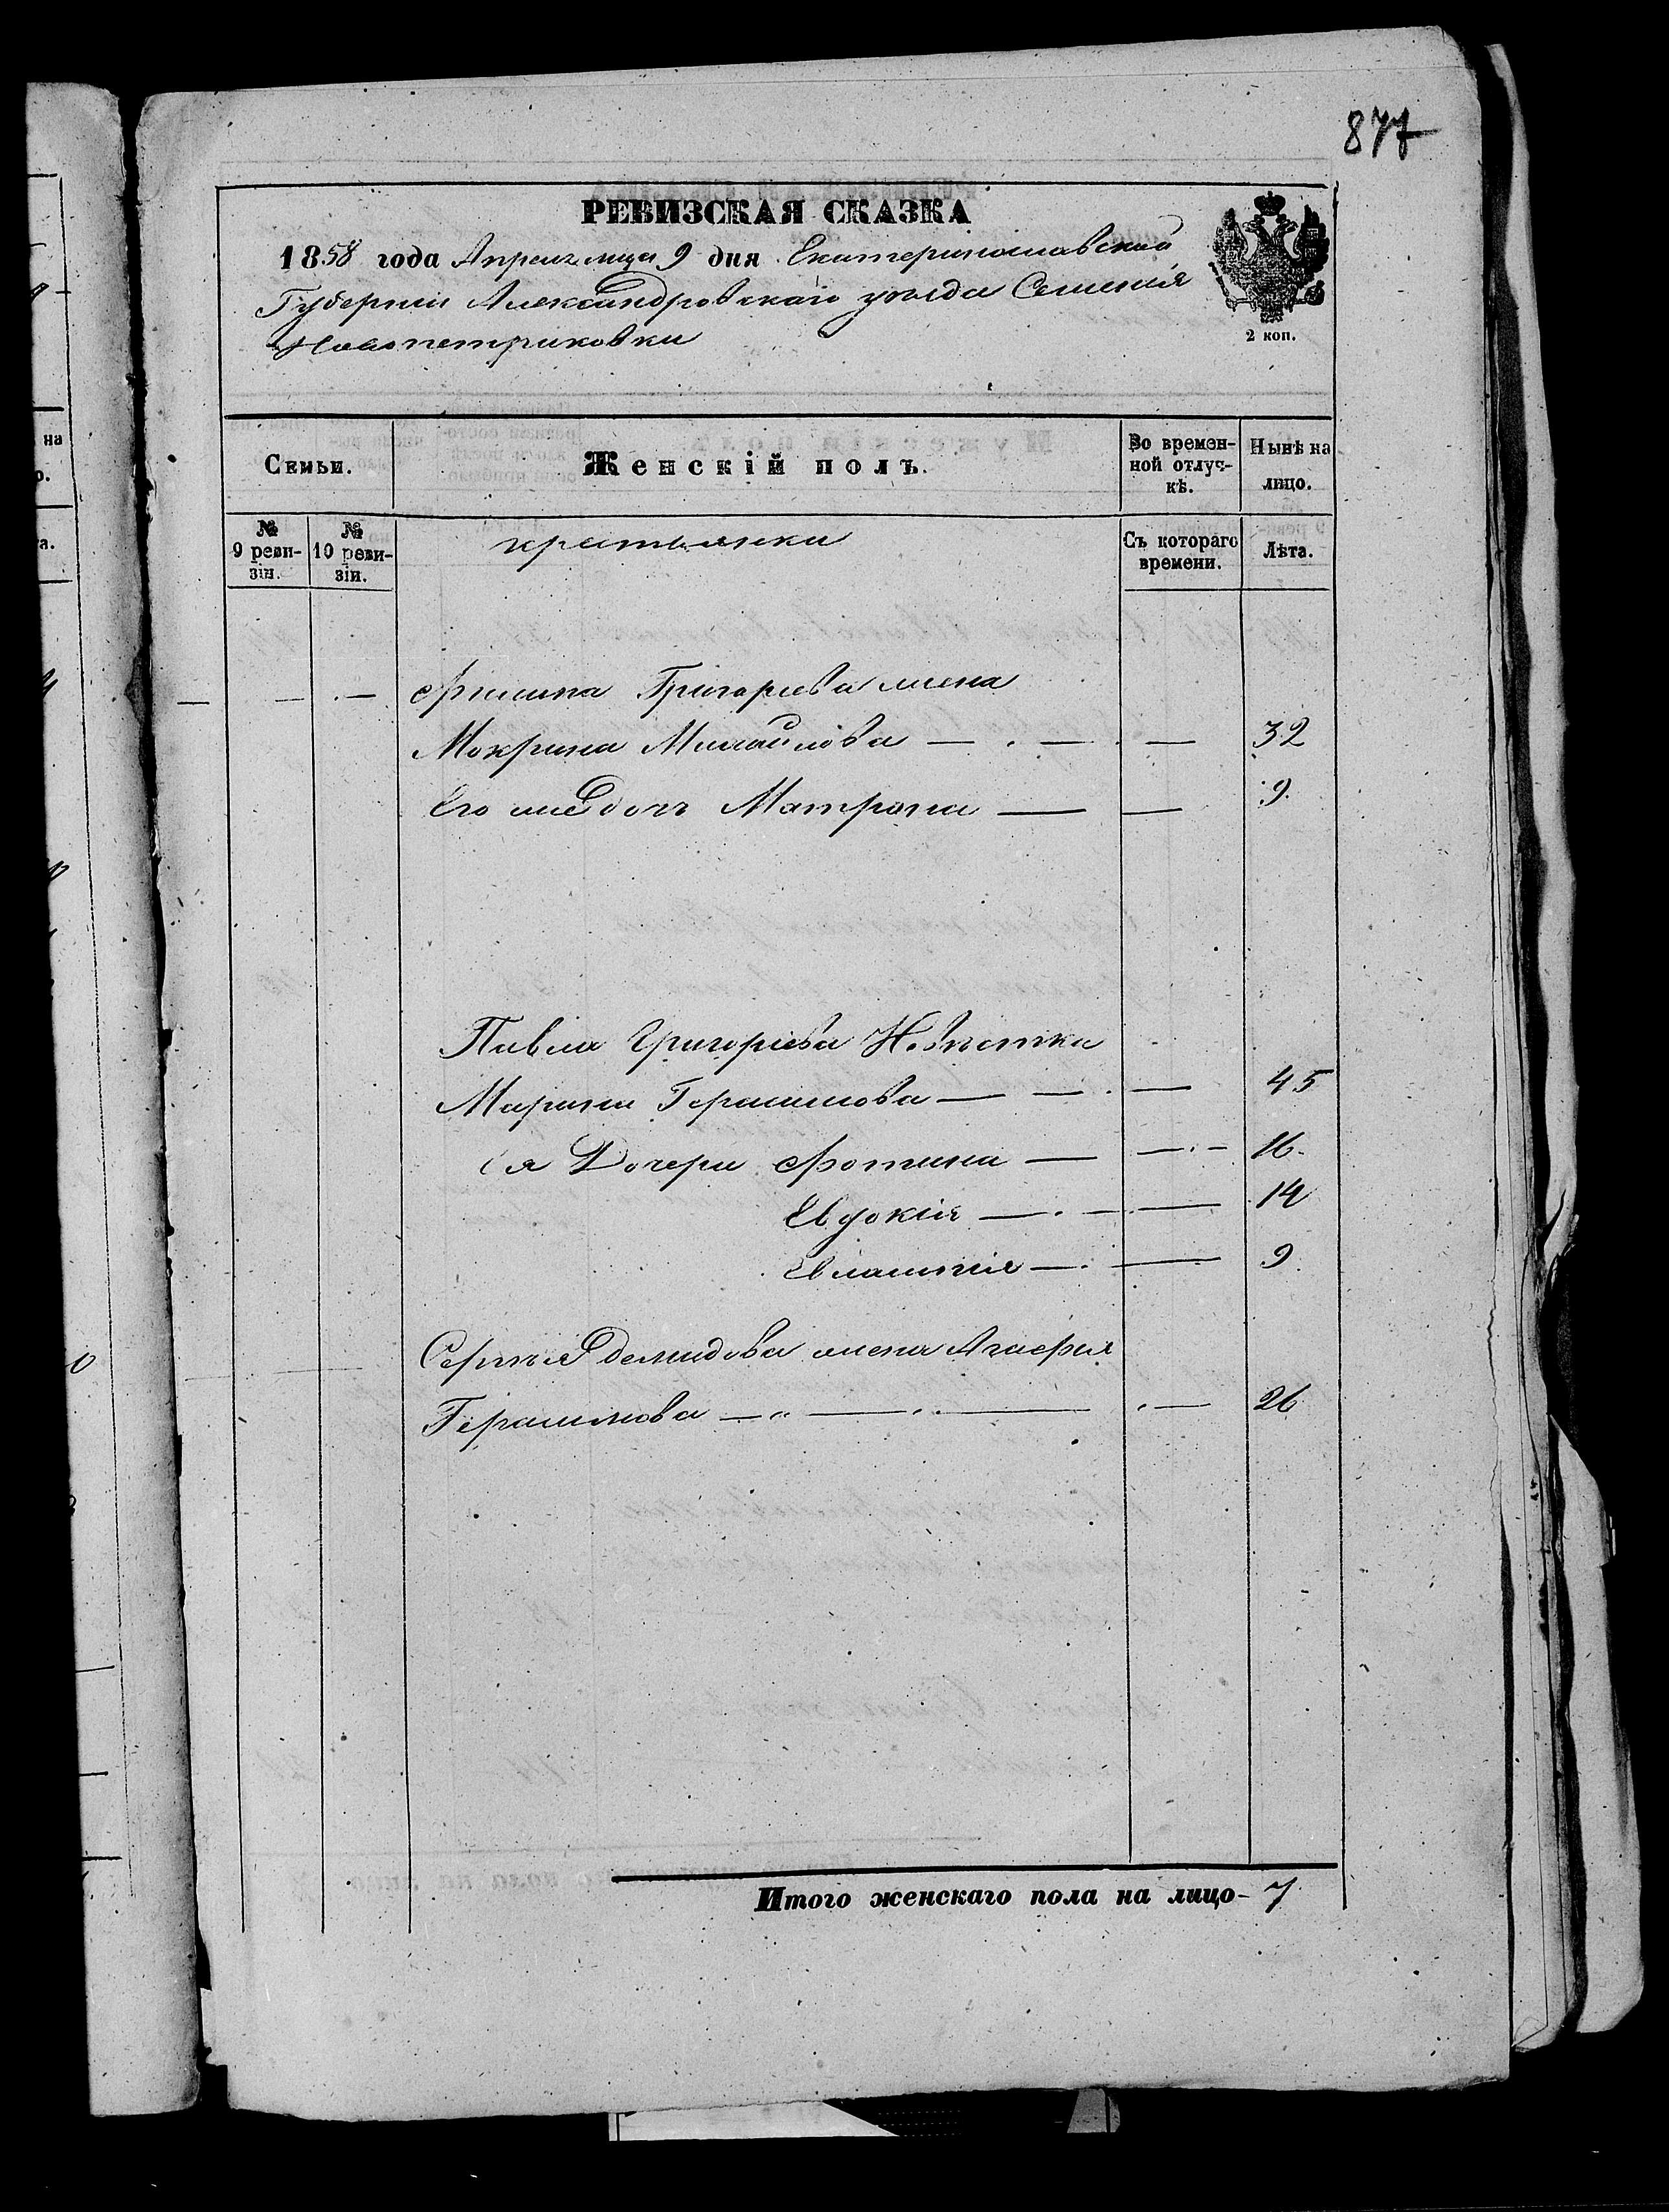 877
РЕВИЗСКАЯ СКАЗКА
1858 года Апреля месяца 9 дня Екатеринославской
Губерніи Александровскаго уѣзда Селенія
Новопетриковки
2 коп.
Семьи.
Женскій полъ.
Во времен-
ной отлуч-
кѣ.
Нынѣ на
лицо.
№
9 реви-
зіи.
№
10 реви-
зіи.
крестьянки
Съ котораго
времени.
Лѣта.
Филипа Григорьева жена
Мокрина Михайлова — — — 32
Его же дочь Матрона — — 9
Павла Григорьева Невѣстка
Марина Герасимова — — — 45
Ея Дочери Фотина — — 16
Евдокія — — — 14
Евлампія — — 9
Сергѣя Демидова жена Агафія
Герасимова — — — — 26
Итого женскаго пола на лицо - 7
на
о.
а.